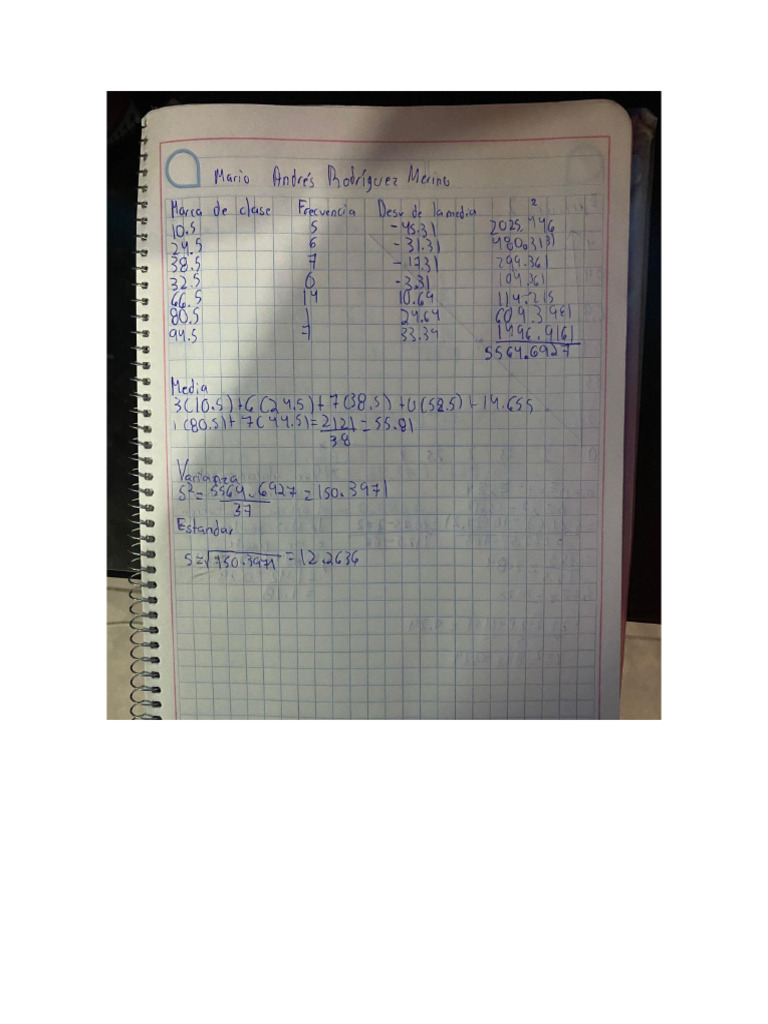 Mario Andrés Rodríguez Merino
Marca de clase Frecuencia Desv de la media ²
10.5 5 -45.31 2025.446
24.5 6 -31.31 480.3131
38.5 7 -17.31 299.361
32.5 0 -3.31 109.361
66.5 14 10.69 114.215
80.5 1 24.69 609.3961
94.5 7 33.39 1496.9161
5564.6927
Media
3(10.5)+6(24.5)+7(38.5)+0(58.5)+14.655
1(80.5)+7(44.5)=2121/38=55.81
Varianza
S²=5564.6927/37=150.3971
Estandar
S=√750.3971=12.2636